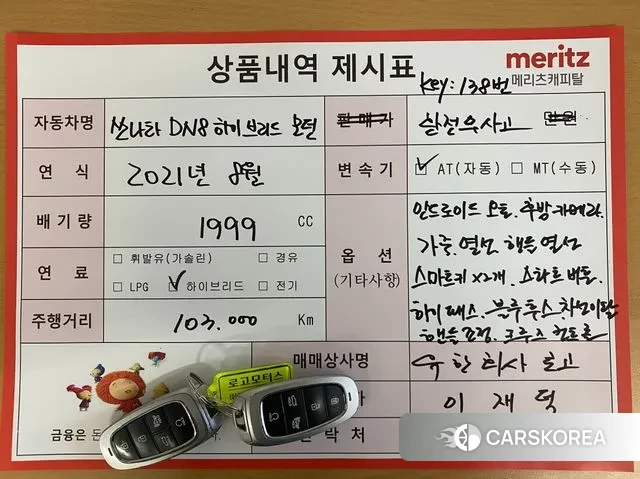 상품내역 제시표
meritz
메리츠캐피탈
Key: 138번
자동차명 쏘나타 DN8 하이브리드 모던
판매가 실전무사고 만원
연 식 2021년 8월
변속기 AT(자동) MT(수동)
배기량 1999 CC
옵 션
(기타사항)
안드로이드 오토. 후방카메라.
가죽. 열선 핸들 열선
스마트키 x2개. 스타트 버튼.
하이패스. 블루투스.
핸들 조정. 크루즈 컨트롤
연 료 휘발유(가솔린) 경유
LPG 하이브리드 전기
주행거리 103.000 Km
매매상사명
로고모터스
이 재
금융은
락 처
CARSKOREA